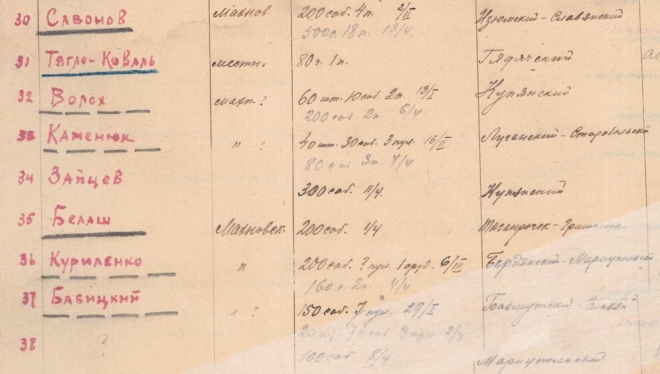 30 Савонов Махнов. 200 саб. 4 п. 2/II Изюмский-Славянский
500 с. 18 п. 13/4
31 Тягло-Коваль местн. 80 п. 1 п. Гадячский
32 Волох махн.? 60 шт. 10 саб. 2 п. 13/I Купянский
200 саб. 2 п. 6/4
33 Каменюк " ? 40 шт. 30 саб. 3 пул. 16/II Луганский-Старобельский
80 саб. 3 п. 4/4
34 Зайцев 300 саб. 11/4 Купянский
35 Белаш Махновск. 200 саб. 1/4
36 Куриленко " 200 саб. ? пул. 1 оруд. 6/III Бердянский-Мариупольский
160 с. 2 п. 4/4
37 Бабицкий " ? 150 саб. 7 пул. 29/I Бахмутский
20 шт. 70 саб. пул. 2/4
38 ? 100 саб. 8/4 Мариупольский